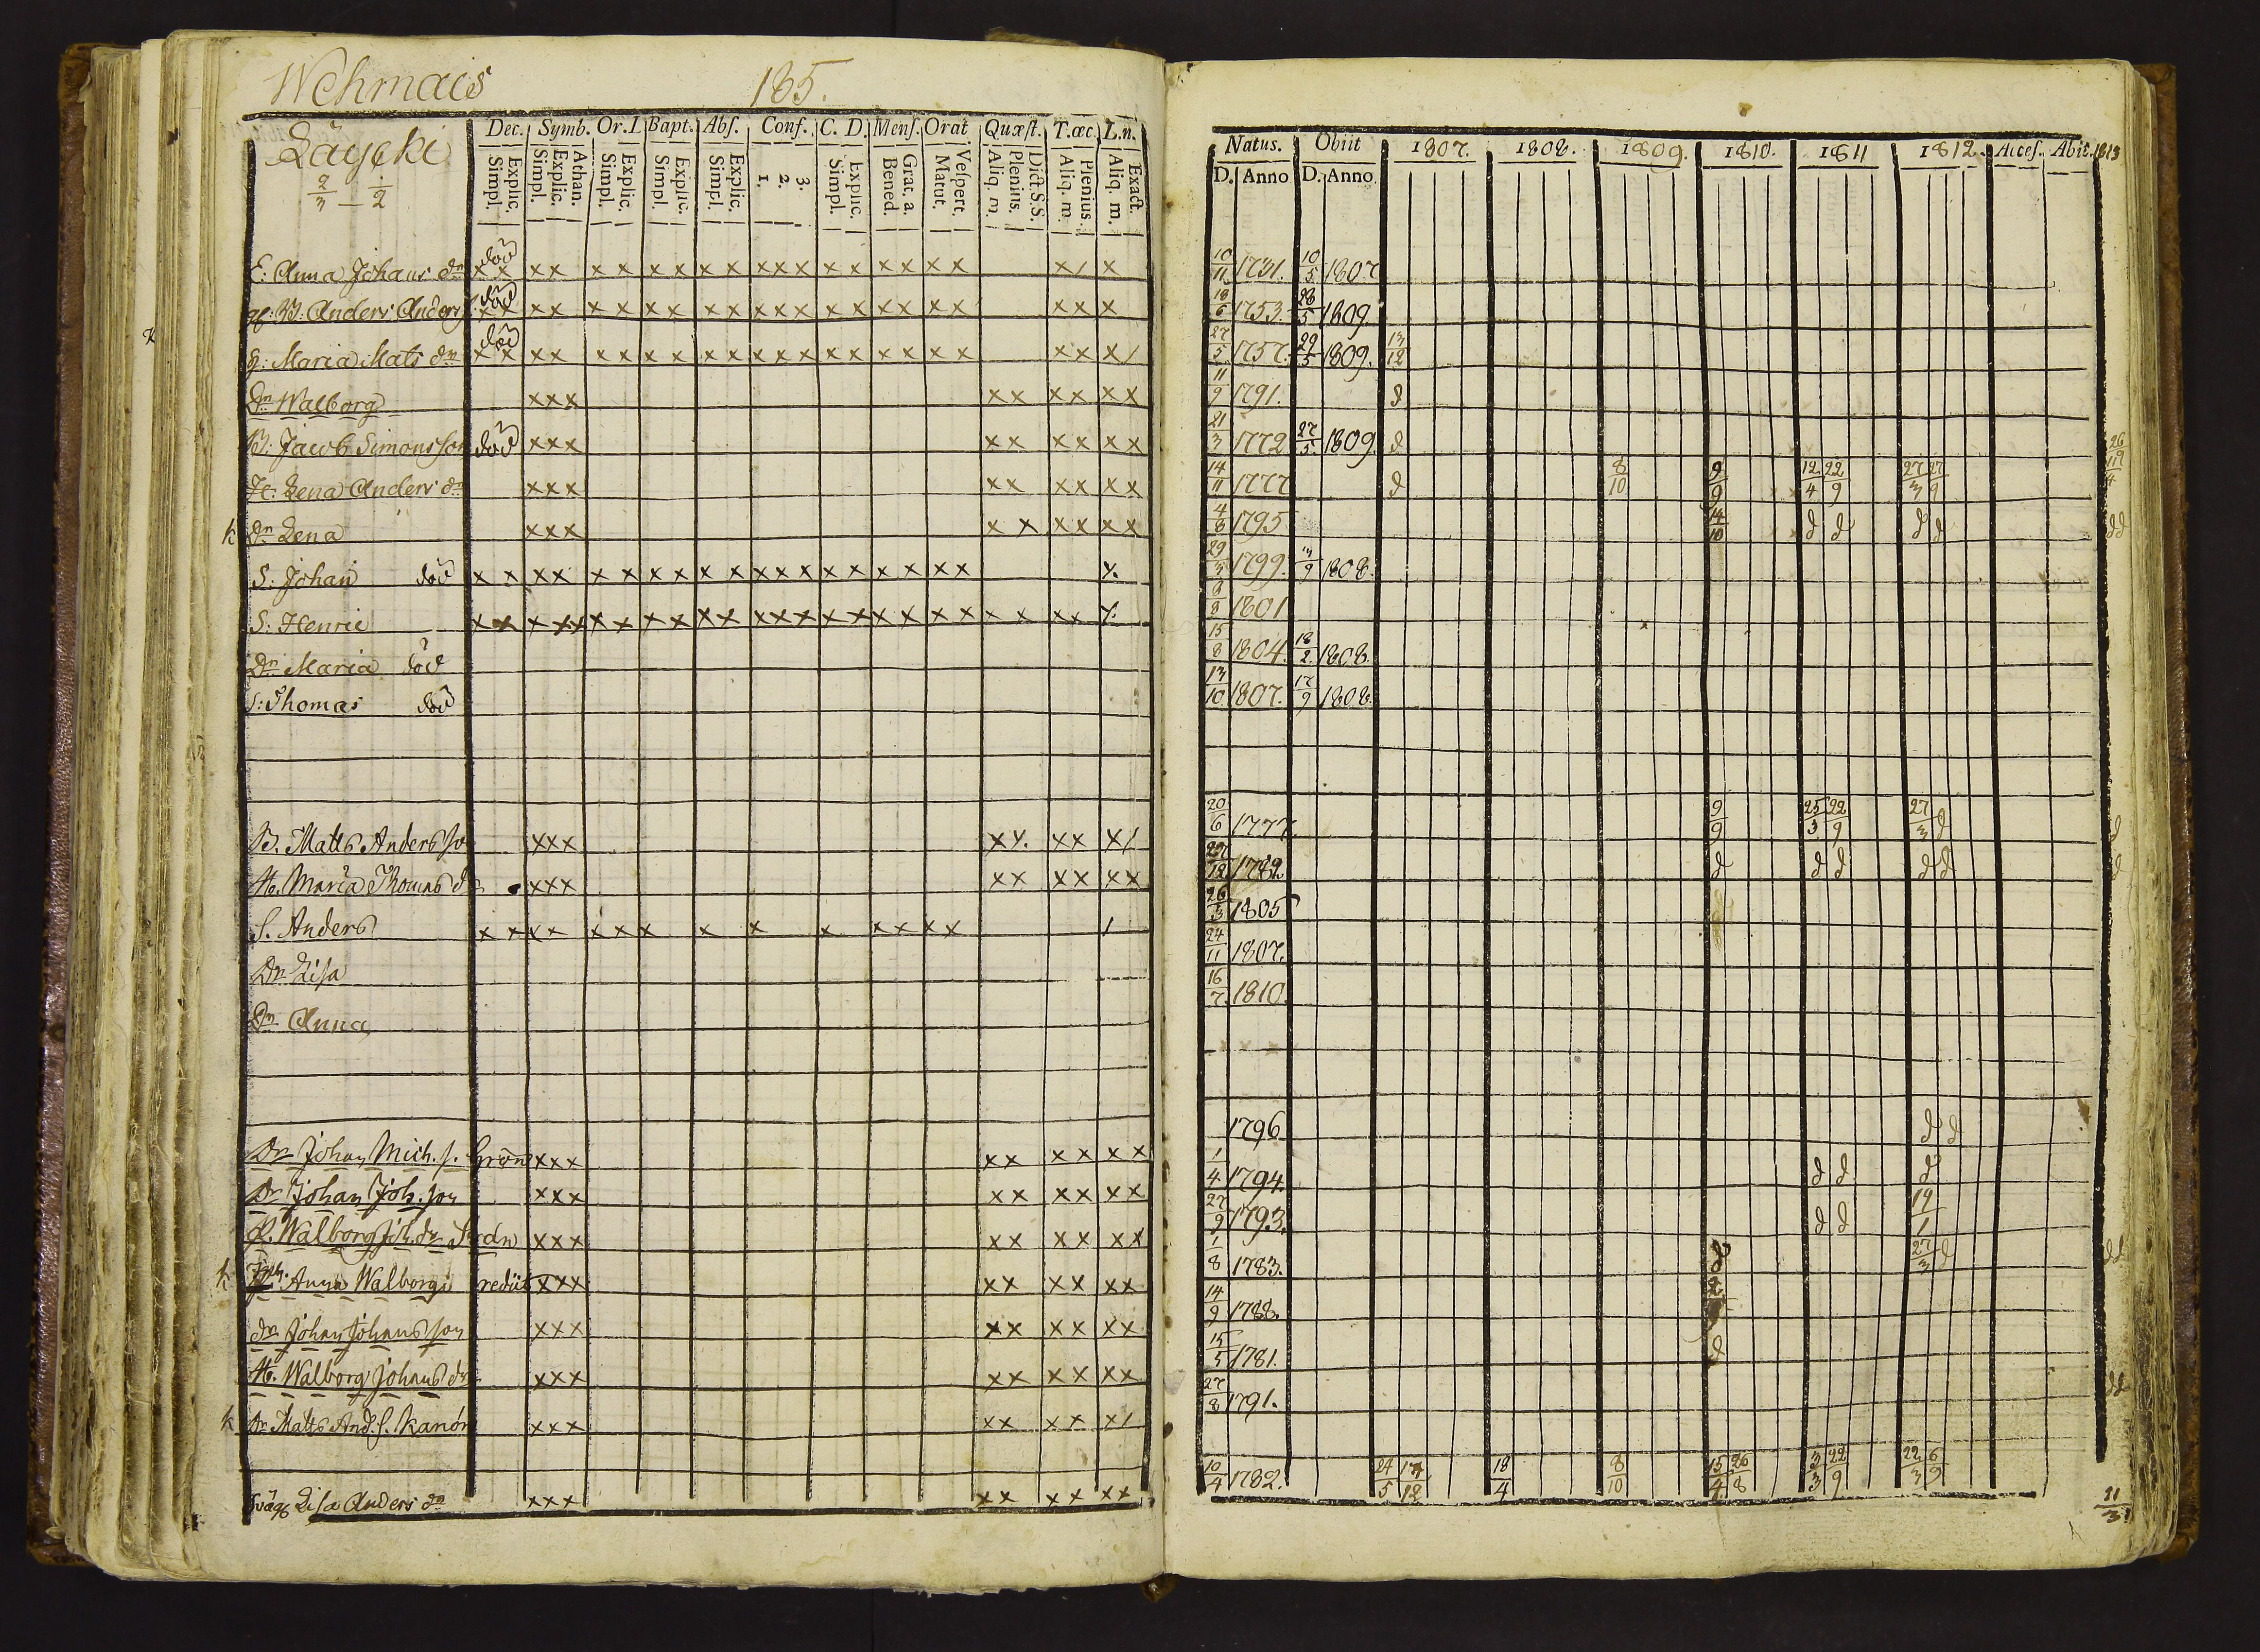 Wehmais 185.
Dec. Symb. Or. L Bapt. Abs. Conf. C. D. Mens. Orat Quæst. T. œc. L. n.
Simpl. Explic. Simpl. Explic. Athan. Simpl. Explic. Simpl. Explic. Simpl. Explic. 1. 2. 3. Simpl. Explic. Bened. Grat. a. Matut. Vespert. Aliq. m. Plenius. Dict. S. S. Aliq. m. Plenius. Aliq. m. Exact.
2/3 – 1/2
E: Anna Johans dr död x x x x x x x x x x x x x x x x x x x x / x
Anders Anders död x x x x x x x x x x x x x x x x x x x x x x x
Maria Mats dr död x x x x x x x x x x x x x x x x x x x x x x /
Dr Walborg x x x x x x x x x
B: Jacob Simonsson död x x x x x x x x x
H: Lena Anders dr x x x x x x x x x
k Dr Lena x x x x x x x x x
S: Johan död x x x x x x x x x x x x x x x x x x x
S: Henric x x x x x x x x x x x x x x x x x x x x x x x x
Dr Maria död
S: Thomas död
B. Matts Andersso x x x x x x x x /
H. Maria Thomas d x x x x x x x x x
S. Anders x x x x x x x x x x x x x x /
Dr Lisa
Dr Anna
Dr Johan Mich. s. Grön x x x x x x x x x
Dr Johan Joh. son x x x x x x x x x
P. Walborg Joh. dr x x x x x x x x x
k Anna Walborg rediit x x x x x x x x x
dr Johan Johansson x x x x x x x x x
H. Walborg Johans dr x x x x x x x x x
k Dr Matts And. s. Kanon x x x x x x x x /
Svåg Lisa Anders dr x x x x x x x x x
Natus. Obiit 1807. 1808. 1809. 1810. 1811 1812. Acces. Abit. 1813
D. Anno D. Anno
10/11 1731. 10/5 1807
18/6 1753. 28/5 1809.
27/5 1757. 29/5 1809. 13/12
11/9 1791. d
21/3 1772 27/5 1809. d
14/11 1777 d 8/10 9/9 12/4 22/9 27/3 27/9
4/8 1795 14/10 d d d d d d
29/3 1799. 13/9 1808.
8/8 1801
15/8 1804. 18/2 1808.
13/10 1807. 17/9 1808.
20/6 1777. 9/9 25/3 22/9 27/3 d d
27/12 1782 d d d d d d
26/3 1805
24/11 1807.
16/7 1810.
1796 d d
1/4 1794. d d d
27/9 1793. d d 19/1
1/8 1783. d 27/3 d d d
14/9 1788.
15/5 1781. d
27/8 1791. d d
10/4 1782. 24/5 13/12 18/4 8/10 15/4 26/8 3/3 22/9 22/3 6/9 21/3